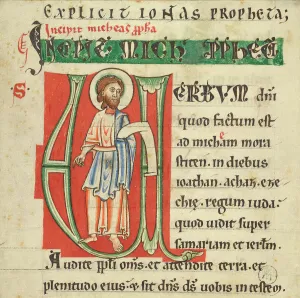 EXPLICIT IONAS PROPHETA;
Incipit micheas ppha
MICH
VERBVM dni
quod factum est
ad micheam mora
sthiten. in diebus
ioathan. achaz. eze
chie. regum iuda.
quod uidit super
samariam et ierlm.
Audite ppli oms. et attendite terra. et
plenitudo eius. & sit dns ds uobis in testem.